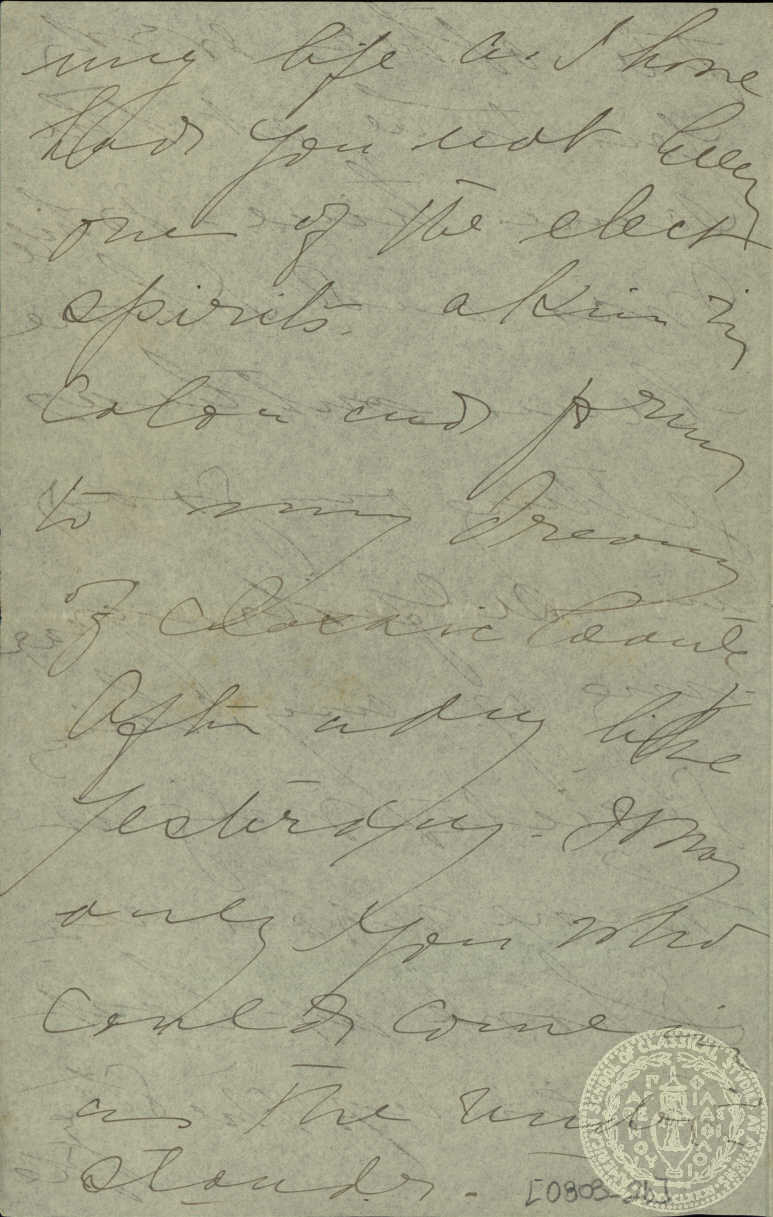 my life as I have
had you not been
one of the elect
spirits. akin in
color and form
to my dreams
of classic beauty
After a day like
yesterday. It was
only you who
could come in
as the under-
stander.
[0803-2b]
AMERICAN SCHOOL OF CLASSICAL STUDIES AT ATHENS